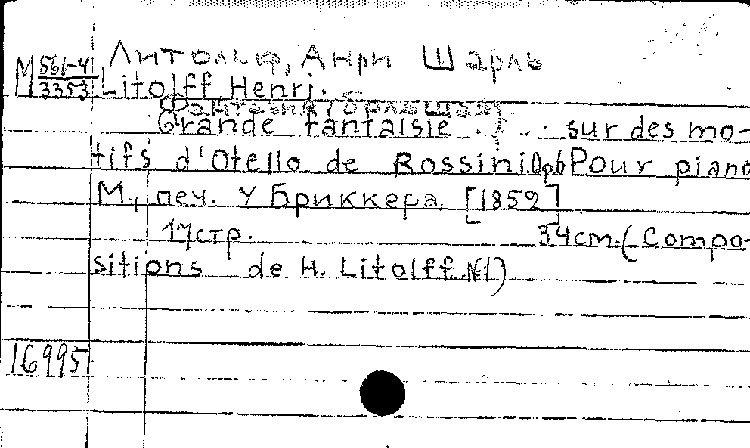 Литольф, Анри Шарль
М 561-4/3353 Litolff Henri.
Фантазия (большая)
Grande fantaisie . . . sur des mo-
tifs d'Otello de Rossini Op6 Pour piano
М., печ. У Бриккера. [1852]
17стр. 34cm. (Compo-
sitions de H. Litolff. №1)
16995